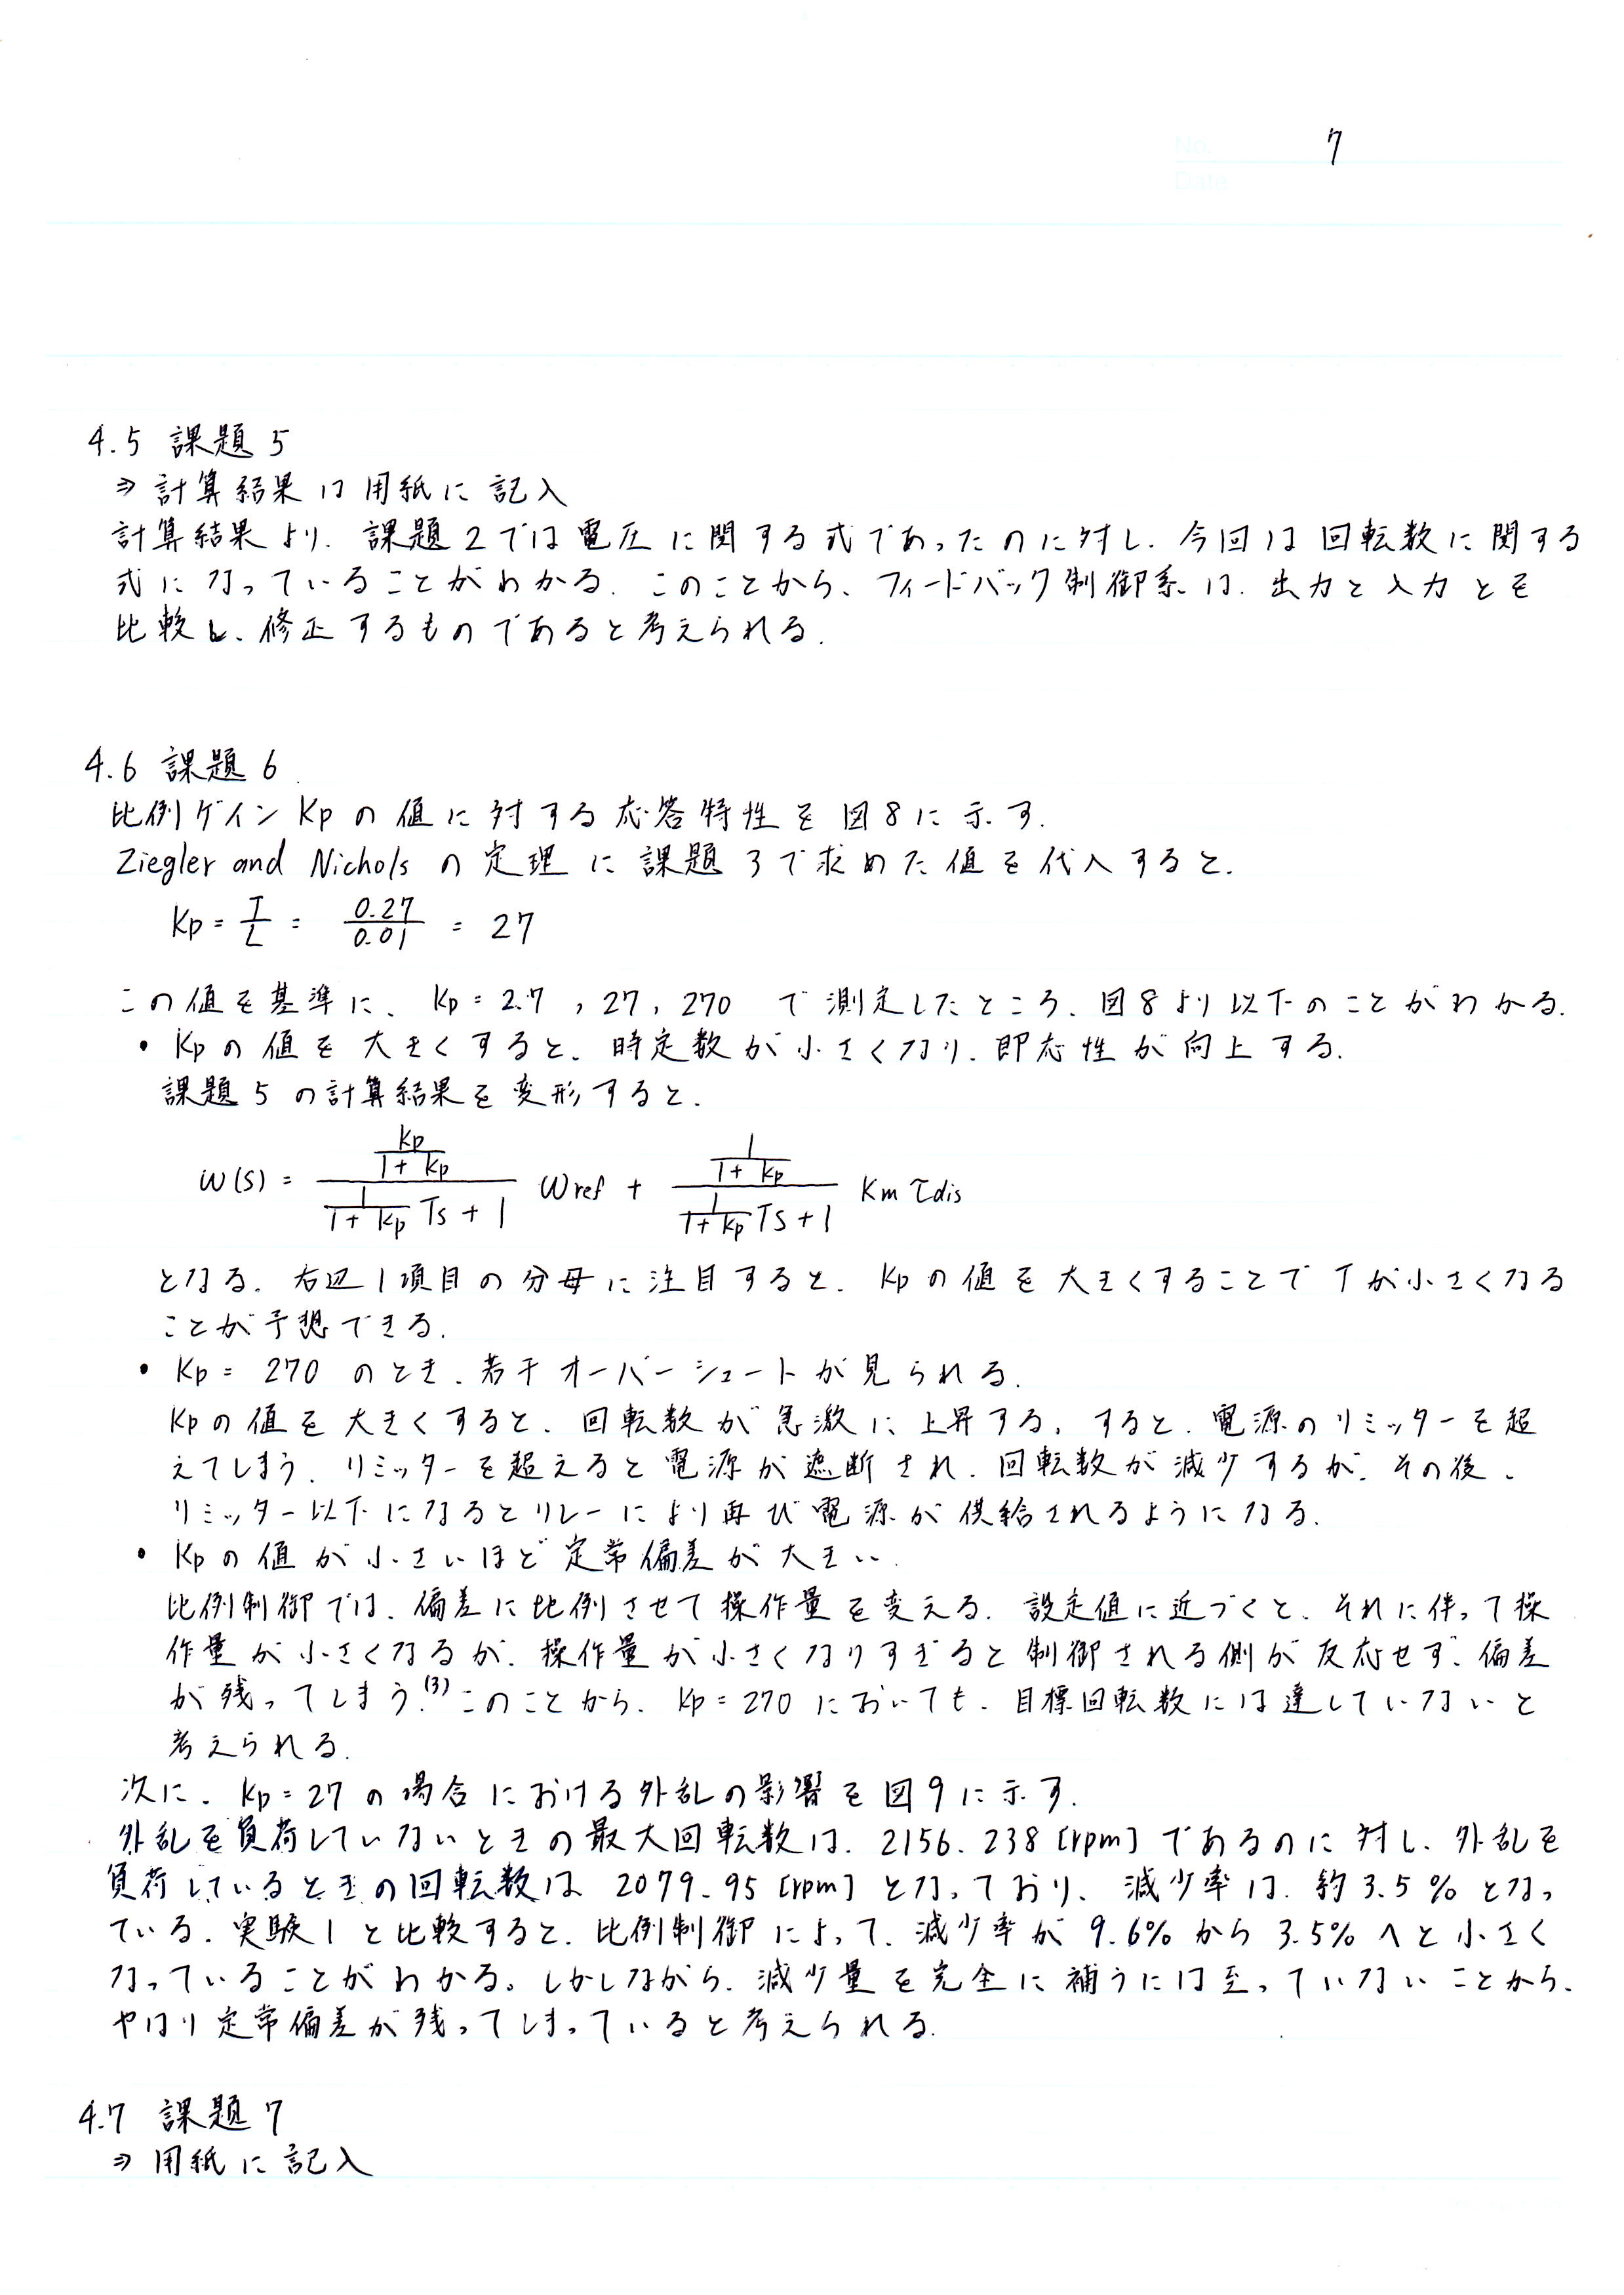 No. 7
Date
4.5 課題5
⇒計算結果は用紙に記入
計算結果より、課題2では電圧に関する式であったのに対し、今回は回転数に関する
式になっていることがわかる。このことから、フィードバック制御系は、出力と入力とを
比較し、修正するものであると考えられる。
4.6 課題6
比例ゲインKpの値に対する応答特性を図8に示す。
Ziegler and Nicholsの定理に課題3で求めた値を代入すると、
Kp = T/L = 0.27/0.01 = 27
この値を基準に、Kp = 2.7, 27, 270 で測定したところ、図8より以下のことがわかる。
・Kpの値を大きくすると、時定数が小さくなり、即応性が向上する。
課題5の計算結果を変形すると、
ω(s) = (Kp/(1+Kp))/((1/(1+Kp))Ts+1) ωref + (1/(1+Kp))/((1/(1+Kp))Ts+1) Km τdis
となる。右辺1項目の分母に注目すると、Kpの値を大きくすることでTが小さくなる
ことが予想できる。
・Kp = 270 のとき、若干オーバーシュートが見られる。
Kpの値を大きくすると、回転数が急激に上昇する。すると、電源のリミッターを超
えてしまう。リミッターを超えると電源が遮断され、回転数が減少するが、その後、
リミッター以下になるとリレーにより再び電源が供給されるようになる。
・Kpの値が小さいほど定常偏差が大きい。
比例制御では、偏差に比例させて操作量を変える。設定値に近づくと、それに伴って操
作量が小さくなるが、操作量が小さくなりすぎると制御される側が反応せず、偏差
が残ってしまう。(3)このことから、Kp=270においても、目標回転数には達していないと
考えられる。
次に、Kp=27の場合における外乱の影響を図9に示す。
外乱を負荷していないときの最大回転数は、2156.238[rpm]であるのに対し、外乱を
負荷しているときの回転数は2079.95[rpm]となっており、減少率は、約3.5%となっ
ている。実験1と比較すると、比例制御によって、減少率が9.6%から3.5%へと小さく
なっていることがわかる。しかしながら、減少量を完全に補うには至っていないことから、
やはり定常偏差が残ってしまっていると考えられる。
4.7 課題7
⇒用紙に記入